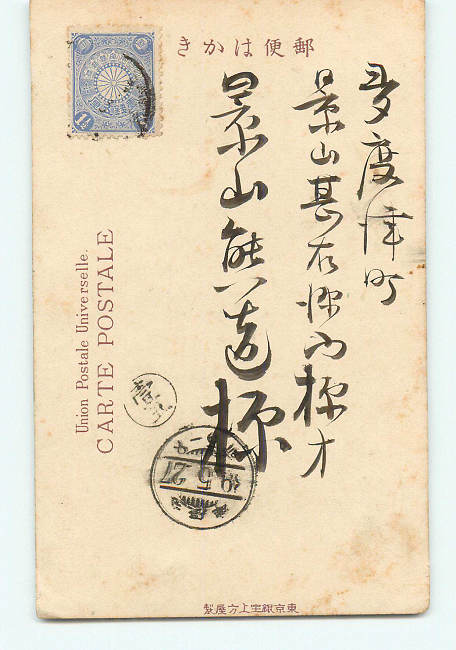 郵便はかき
多度津町
景山甚右衛門様方
景山 様
Union Postale Universelle.
CARTE POSTALE
5 27
東京銀座上方屋製